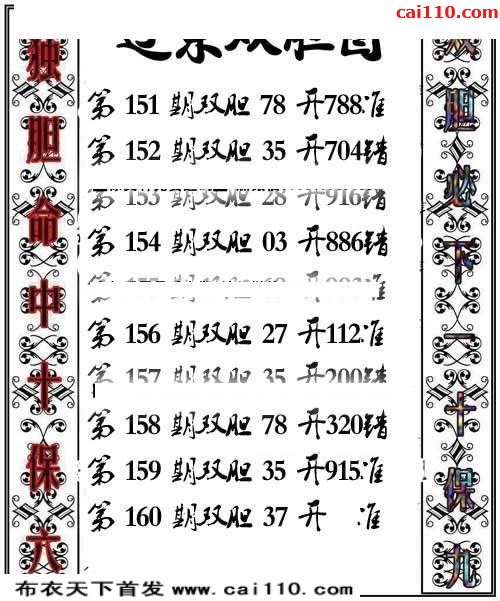 cai110.com
双胆图
第 151 期双胆 78 开788准
第 152 期双胆 35 开704错
第 153 期双胆 28 开916错
第 154 期双胆 03 开886错
第 156 期双胆 27 开112准
第 157 期双胆 35 开200错
第 158 期双胆 78 开320错
第 159 期双胆 35 开915准
第 160 期双胆 37 开 准
独胆命中十保六
双胆必下一十保九
布衣天下首发 www.cai110.com